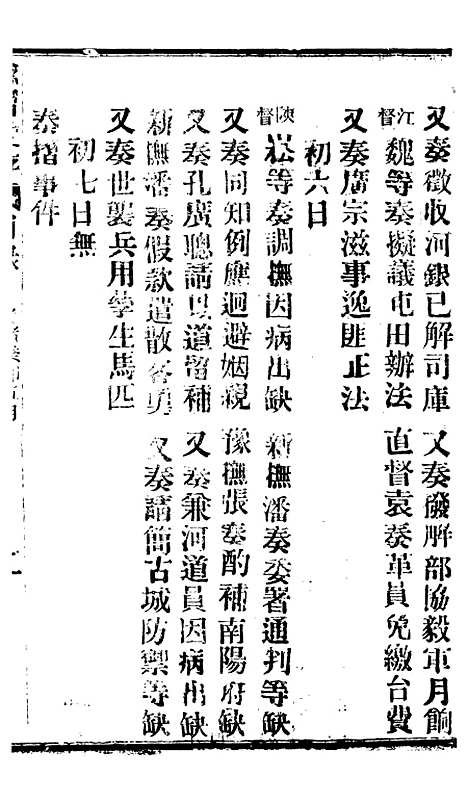 又奏徵收河銀已解司庫　又奏撥解部協毅軍月餉
江督魏等奏擬議屯田辦法　直督袁奏革員免繳台費
又奏廣宗滋事逸匪正法
初六日
陝督崧等奏調撫因病出缺　新撫潘奏委署通判等缺
又奏同知例應迴避姻親　豫撫張奏酌補南陽府缺
又奏孔廣聰請以道留補　又奏兼河道員因病出缺
新撫潘奏假款遣散客勇　又奏請簡古城防禦等缺
又奏世襲兵用學生馬匹
初七日無
奏摺事件